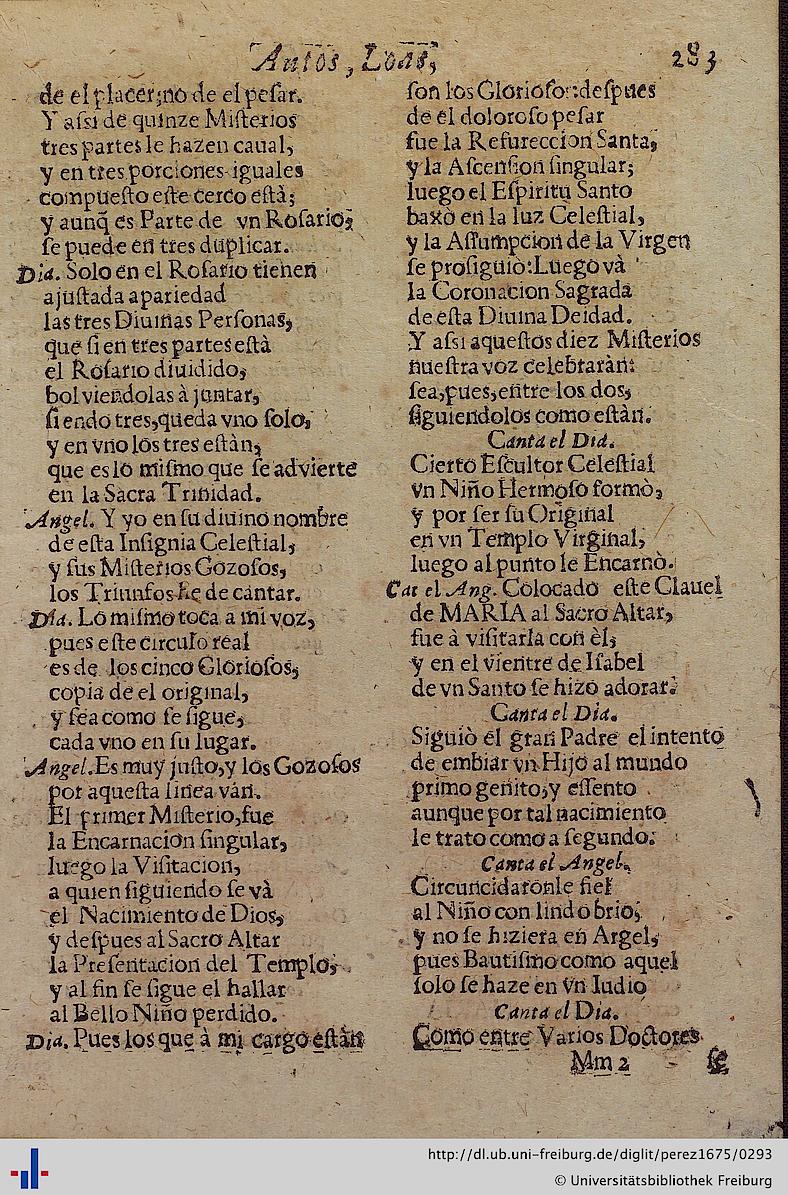 Autos, Loas,
283
de el placer; no de el pesar.
Y assi de quinze Misterios
tres partes le hazen caual,
y en tres porciones iguales
compuesto este cerco està;
y aunq̃ es Parte de vn Rosario,
se puede en tres duplicar.
Dia. Solo en el Rosario tienen
ajustada apariedad
las tres Diuinas Personas,
que si en tres partes està
el Rosario diuidido,
bolviendolas à juntar,
siendo tres, queda vno solo,
y en vno los tres estàn,
que es lo mismo que se advierte
en la Sacra Trinidad.
Angel. Y yo en su diuino nombre
de esta Insignia Celestial,
y sus Misterios Gozosos,
los Triunfos he de cantar.
Dia. Lo mismo toca a mi voz,
pues este circulo real
es de los cinco Gloriosos,
copia de el original,
y sea como se sigue,
cada vno en su lugar.
Angel. Es muy justo, y los Gozosos
por aquesta linea van.
El primer Misterio, fue
la Encarnacion singular,
luego la Visitacion,
a quien siguiendo se và
el Nacimiento de Dios,
y despues al Sacro Altar
la Presentacion del Templo,
y al fin se sigue el hallar
al Bello Niño perdido.
Dia. Pues los que à mi cargo estàn
son los Gloriosos: despues
de el doloroso pesar
fue la Resureccion Santa,
y la Ascension singular;
luego el Espiritu Santo
baxò en la luz Celestial,
y la Assumpcion de la Virgen
se prosiguiò: Luego và
la Coronacion Sagrada
de esta Diuina Deidad.
Y assi aquestos diez Misterios
nuestra voz celebraràn:
sea, pues, entre los dos,
siguiendolos como estàn.
Canta el Dia.
Cierto Escultor Celestial
vn Niño Hermoso formò,
y por ser su Original
en vn Templo Virginal,
luego al punto le Encarnò.
Cat el Ang. Colocado este Clauel
de MARIA al Sacro Altar,
fue à visitarla con èl,
y en el vientre de Isabel
de vn Santo se hizo adorar.
Canta el Dia.
Siguiò el gran Padre el intento
de embiar vn Hijo al mundo
primogenito, y essento
aunque por tal nacimiento
le trato como a segundo.
Canta el Angel.
Circuncidaronle fiel
al Niño con lindo brio,
y no se hiziera en Argel,
pues Bautismo como aquel
solo se haze en vn Iudio
Canta el Dia.
Como entre Varios Doctores
Mm 2
se
http://dl.ub.uni-freiburg.de/diglit/perez1675/0293
© Universitätsbibliothek Freiburg